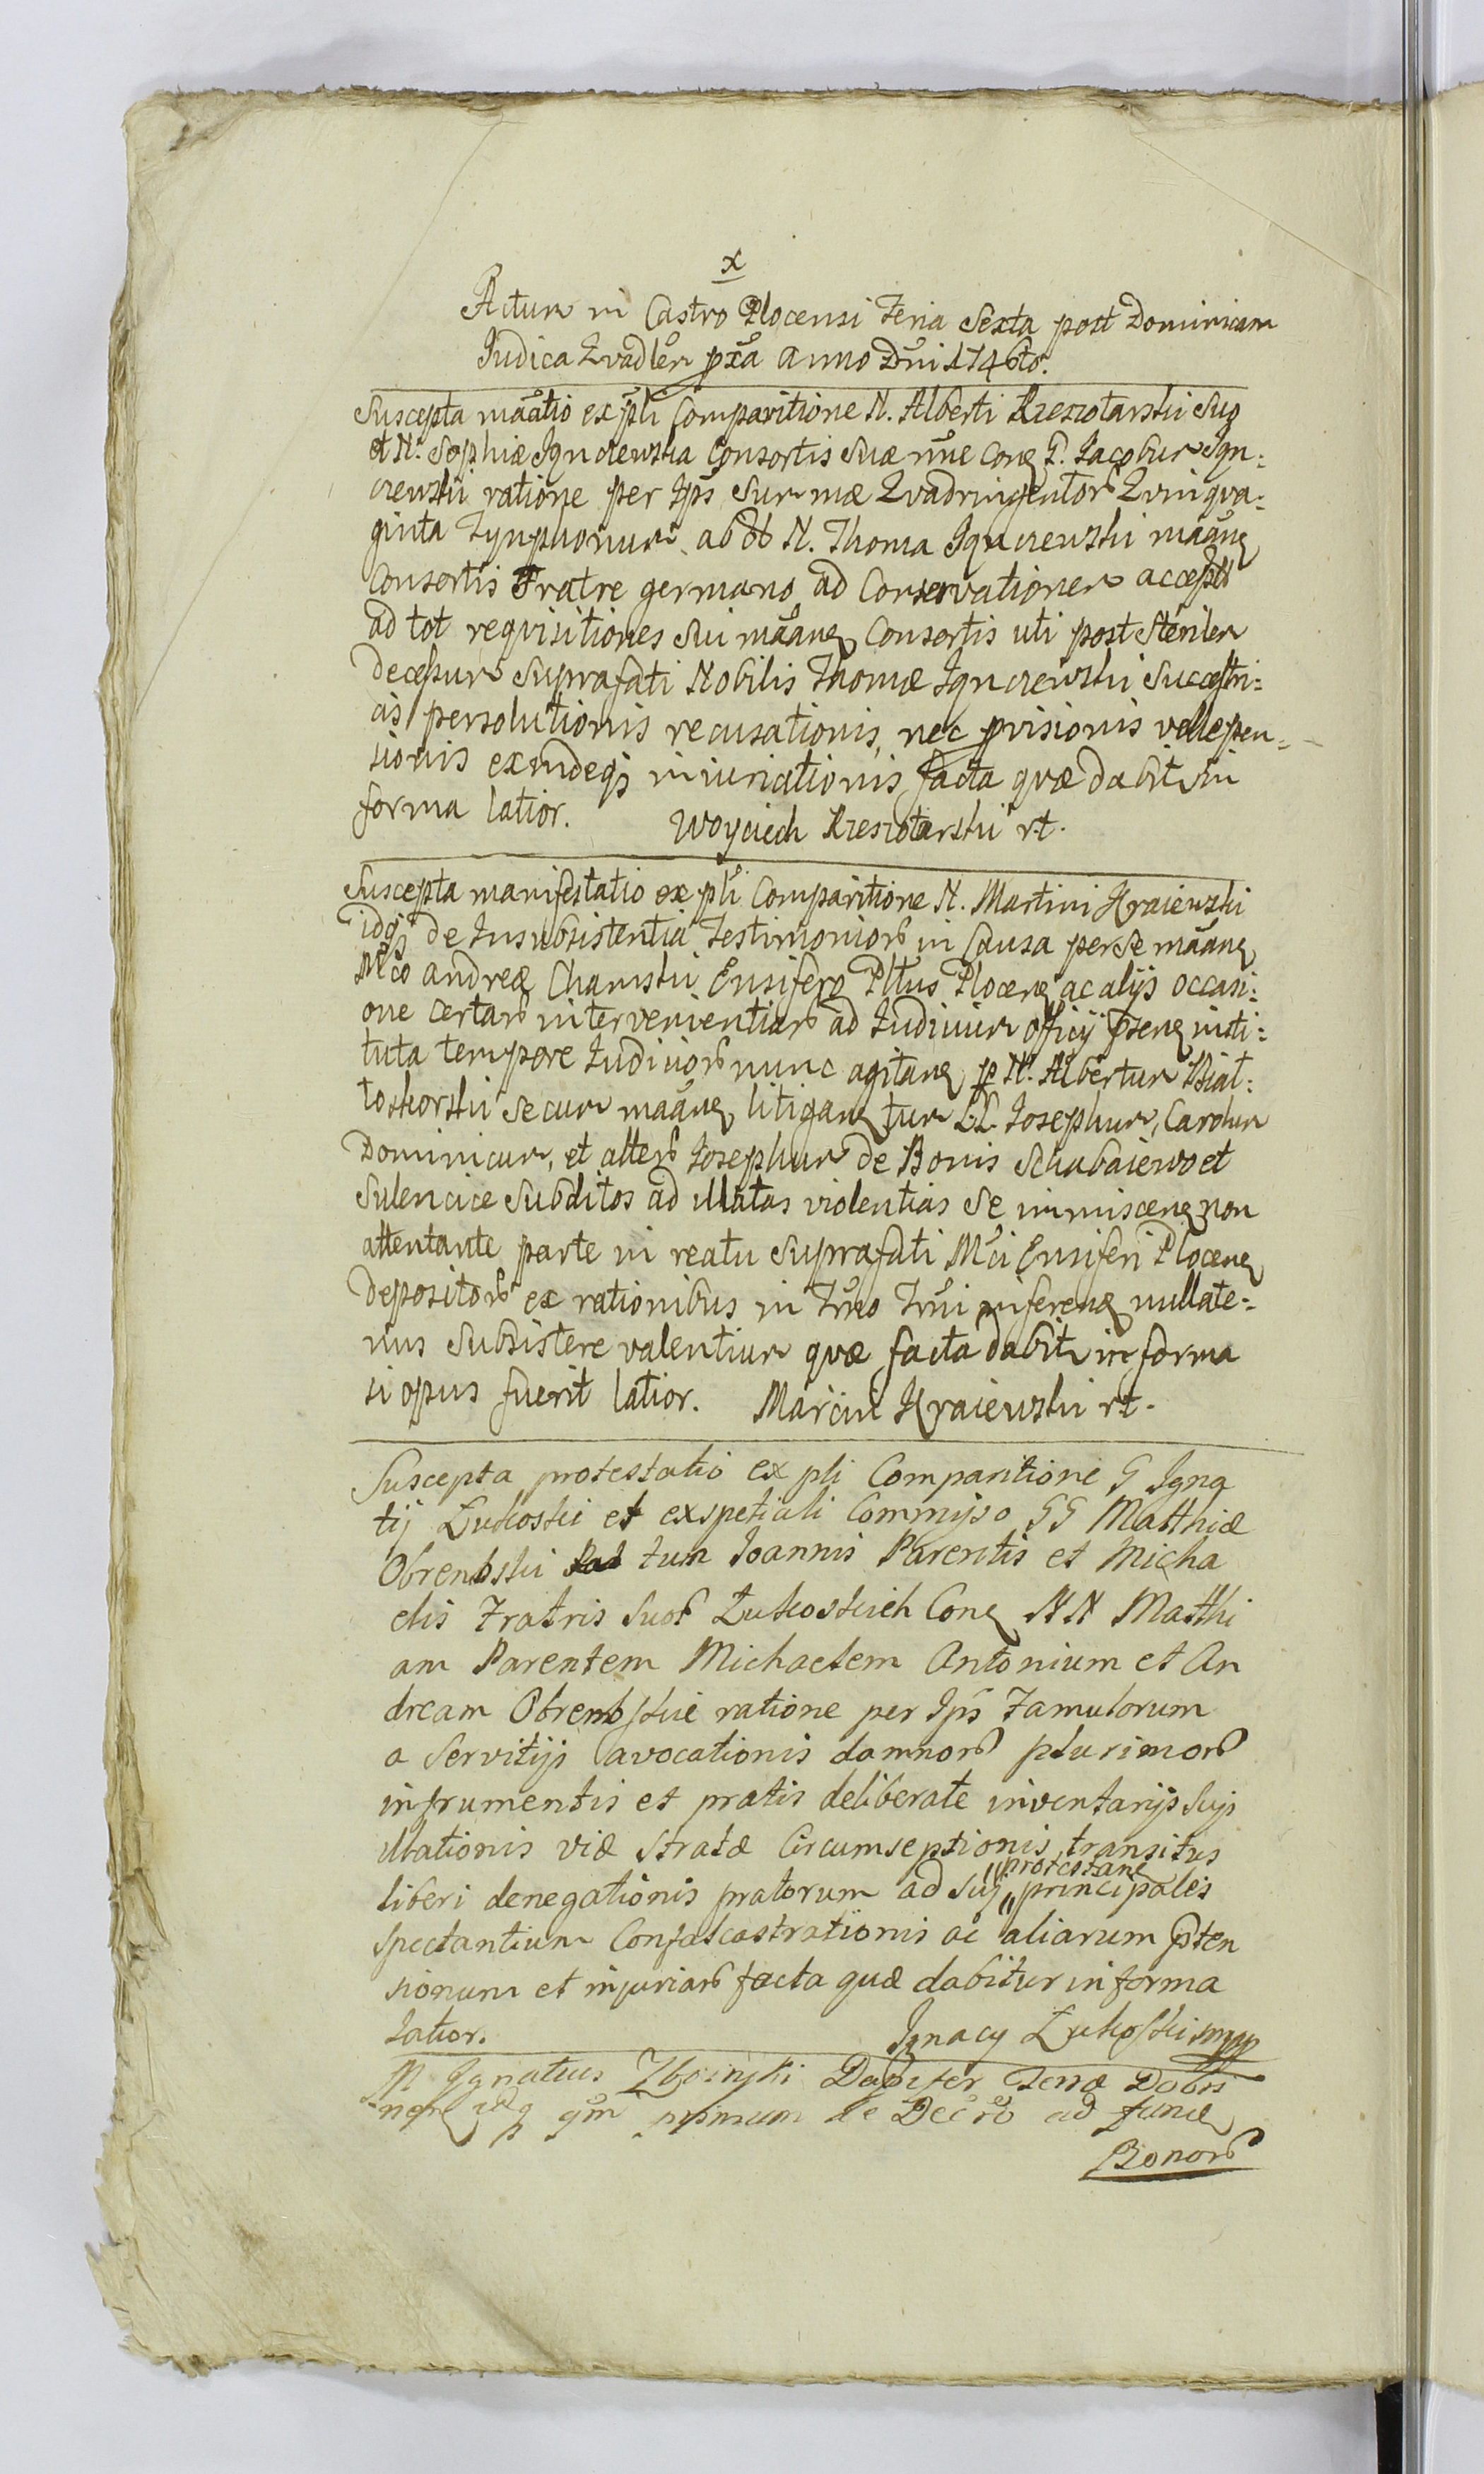 x
Actum in Castro Plocensi Feria Sexta post Dominicam
Judica Qvadlem pxa Anno Dni 1746to.
Suscepta maatio ex pli Comparitione N. Alberti suo
et N. Sophiæ Consortis Suæ nne Conq P. Iacobum Ign:
ratione per Ips Summæ Qvadringentor Qvinqva:
ginta Tynphonum ab N. Thoma maanq
Consortis Fratre germano ad Conservationem accept
ad tot reqvisitiones Sui maanq Consortis uti post Sterilem
decessum Suprafati Nobilis Thomæ Successri:
as persolutionis recusationis, nec pvisionis vel
sionis exindeqs iniuriationis facta qvæ dabit in
forma latior. Woyciech rt.
Suscepta manifestatio ex pli Comparitione N. Martini Kraiewski
idqs de Insubsistentia Testimonior in Causa per Se maanq
Mco Andreæ Chamski Ensifero Pltus Plocenq ac alijs occasi:
one certar intervenientiar ad Iudicium officij psenq insti:
tuta tempore Iudicior nunc agitanq p N. Albertum Biał:
łoskorski Secum maanq litiganq tum LL Iosephum, Carolum
Dominicum, et alter Iosephum de Bonis et
Subditos ad illatas violentias Se immiscenq non
attentante parte in reatu Suprafati Mci Ensiferi Plocenq
depositor ex rationibus in Tmo Tmi inferenq nullate:
nus Subsistere valentium qvæ facta dabit in forma
si opus fuerit latior. Marcin Kraiewski rt.
Suscepta protestatio ex pli Comparitione G Igna
tij Lukoski et ex spetiali Commisso GG Matthiæ
Obrembski tum Ioannis Parentis et Micha
elis Fratris Suor Lukoskich Conq NN Matthi
am Parentem Michaelem Antonium et An
dream Obrembskie ratione per Ips Famulorum
a Servitijs avocationis damnor plurimor
in frumentis et pratis deliberate inventarijs Suis
illationis viæ Stratæ Circumseptionis transitus
protestanq
liberi denegationis pratorum ad Sui principales
Spectantium Confalcastrationis ac aliarum pten
sionum et injuriar facta quæ dabitur in forma
latior. Ignacy Lukoski mpp
M Ignatius Zboinski Dapifer Terræ Dobri
nen idq qm primum de Decro ad
Bonor